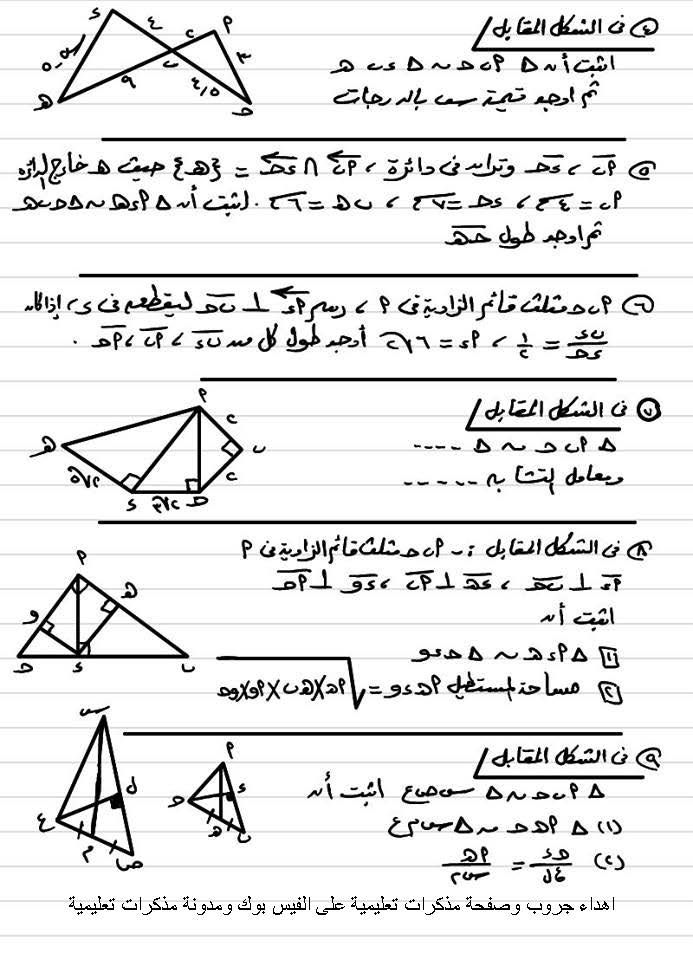 ٤ فى الشكل المقابل
اثبت أن Δ أ ب حـ ~ Δ ء ب هـ
ثم اوجد قيمة س بالدرجات
ء ٤ ٢ أ ٣ ب ٤,٥ ٩ هـ حـ
٥ أ ب ، ء حـ وتران فى دائرة ، أ ب ∩ ء حـ = {هـ} حيث هـ خارج الدائرة
أ ب = ٤ سم ، ء حـ = ٧ سم ، ب هـ = ٦ سم . اثبت أن Δ أ ء هـ ~ Δ حـ ب هـ
ثم اوجد طول حـ هـ
٦ أ ب حـ مثلث قائم الزاوية فى أ ، رسم أ ء ⊥ ب حـ ليقطعه فى ء ، إذا كان
ب ء / ء حـ = ١/٢ ، أ ء = ٦√٢ أوجد طول كل من ب ء ، أ ب ، أ حـ .
٧ فى الشكل المقابل
Δ أ ب حـ ~ Δ ----
ومعامل التشابه -----
أ ٢ ب ٢ حـ ء هـ
٨ فى الشكل المقابل : أ ب حـ مثلث قائم الزاوية فى أ
أ ء ⊥ ب حـ ، ء هـ ⊥ أ ب ، ء و ⊥ أ حـ
اثبت أن
١ Δ أ ء هـ ~ Δ حـ ء و
٢ مساحة المستطيل أ هـ ء و = √ أ هـ × هـ ب × أ و × و حـ
أ هـ و حـ ء ب
٩ فى الشكل المقابل
Δ أ ب حـ ~ Δ س ص ع اثبت أن
(١) Δ أ هـ حـ ~ Δ س م ع
(٢) حـ ء / ع ل = أ هـ / س م
س ل ع م ص أ ء حـ هـ ب
اهداء جروب وصفحة مذكرات تعليمية على الفيس بوك ومدونة مذكرات تعليمية